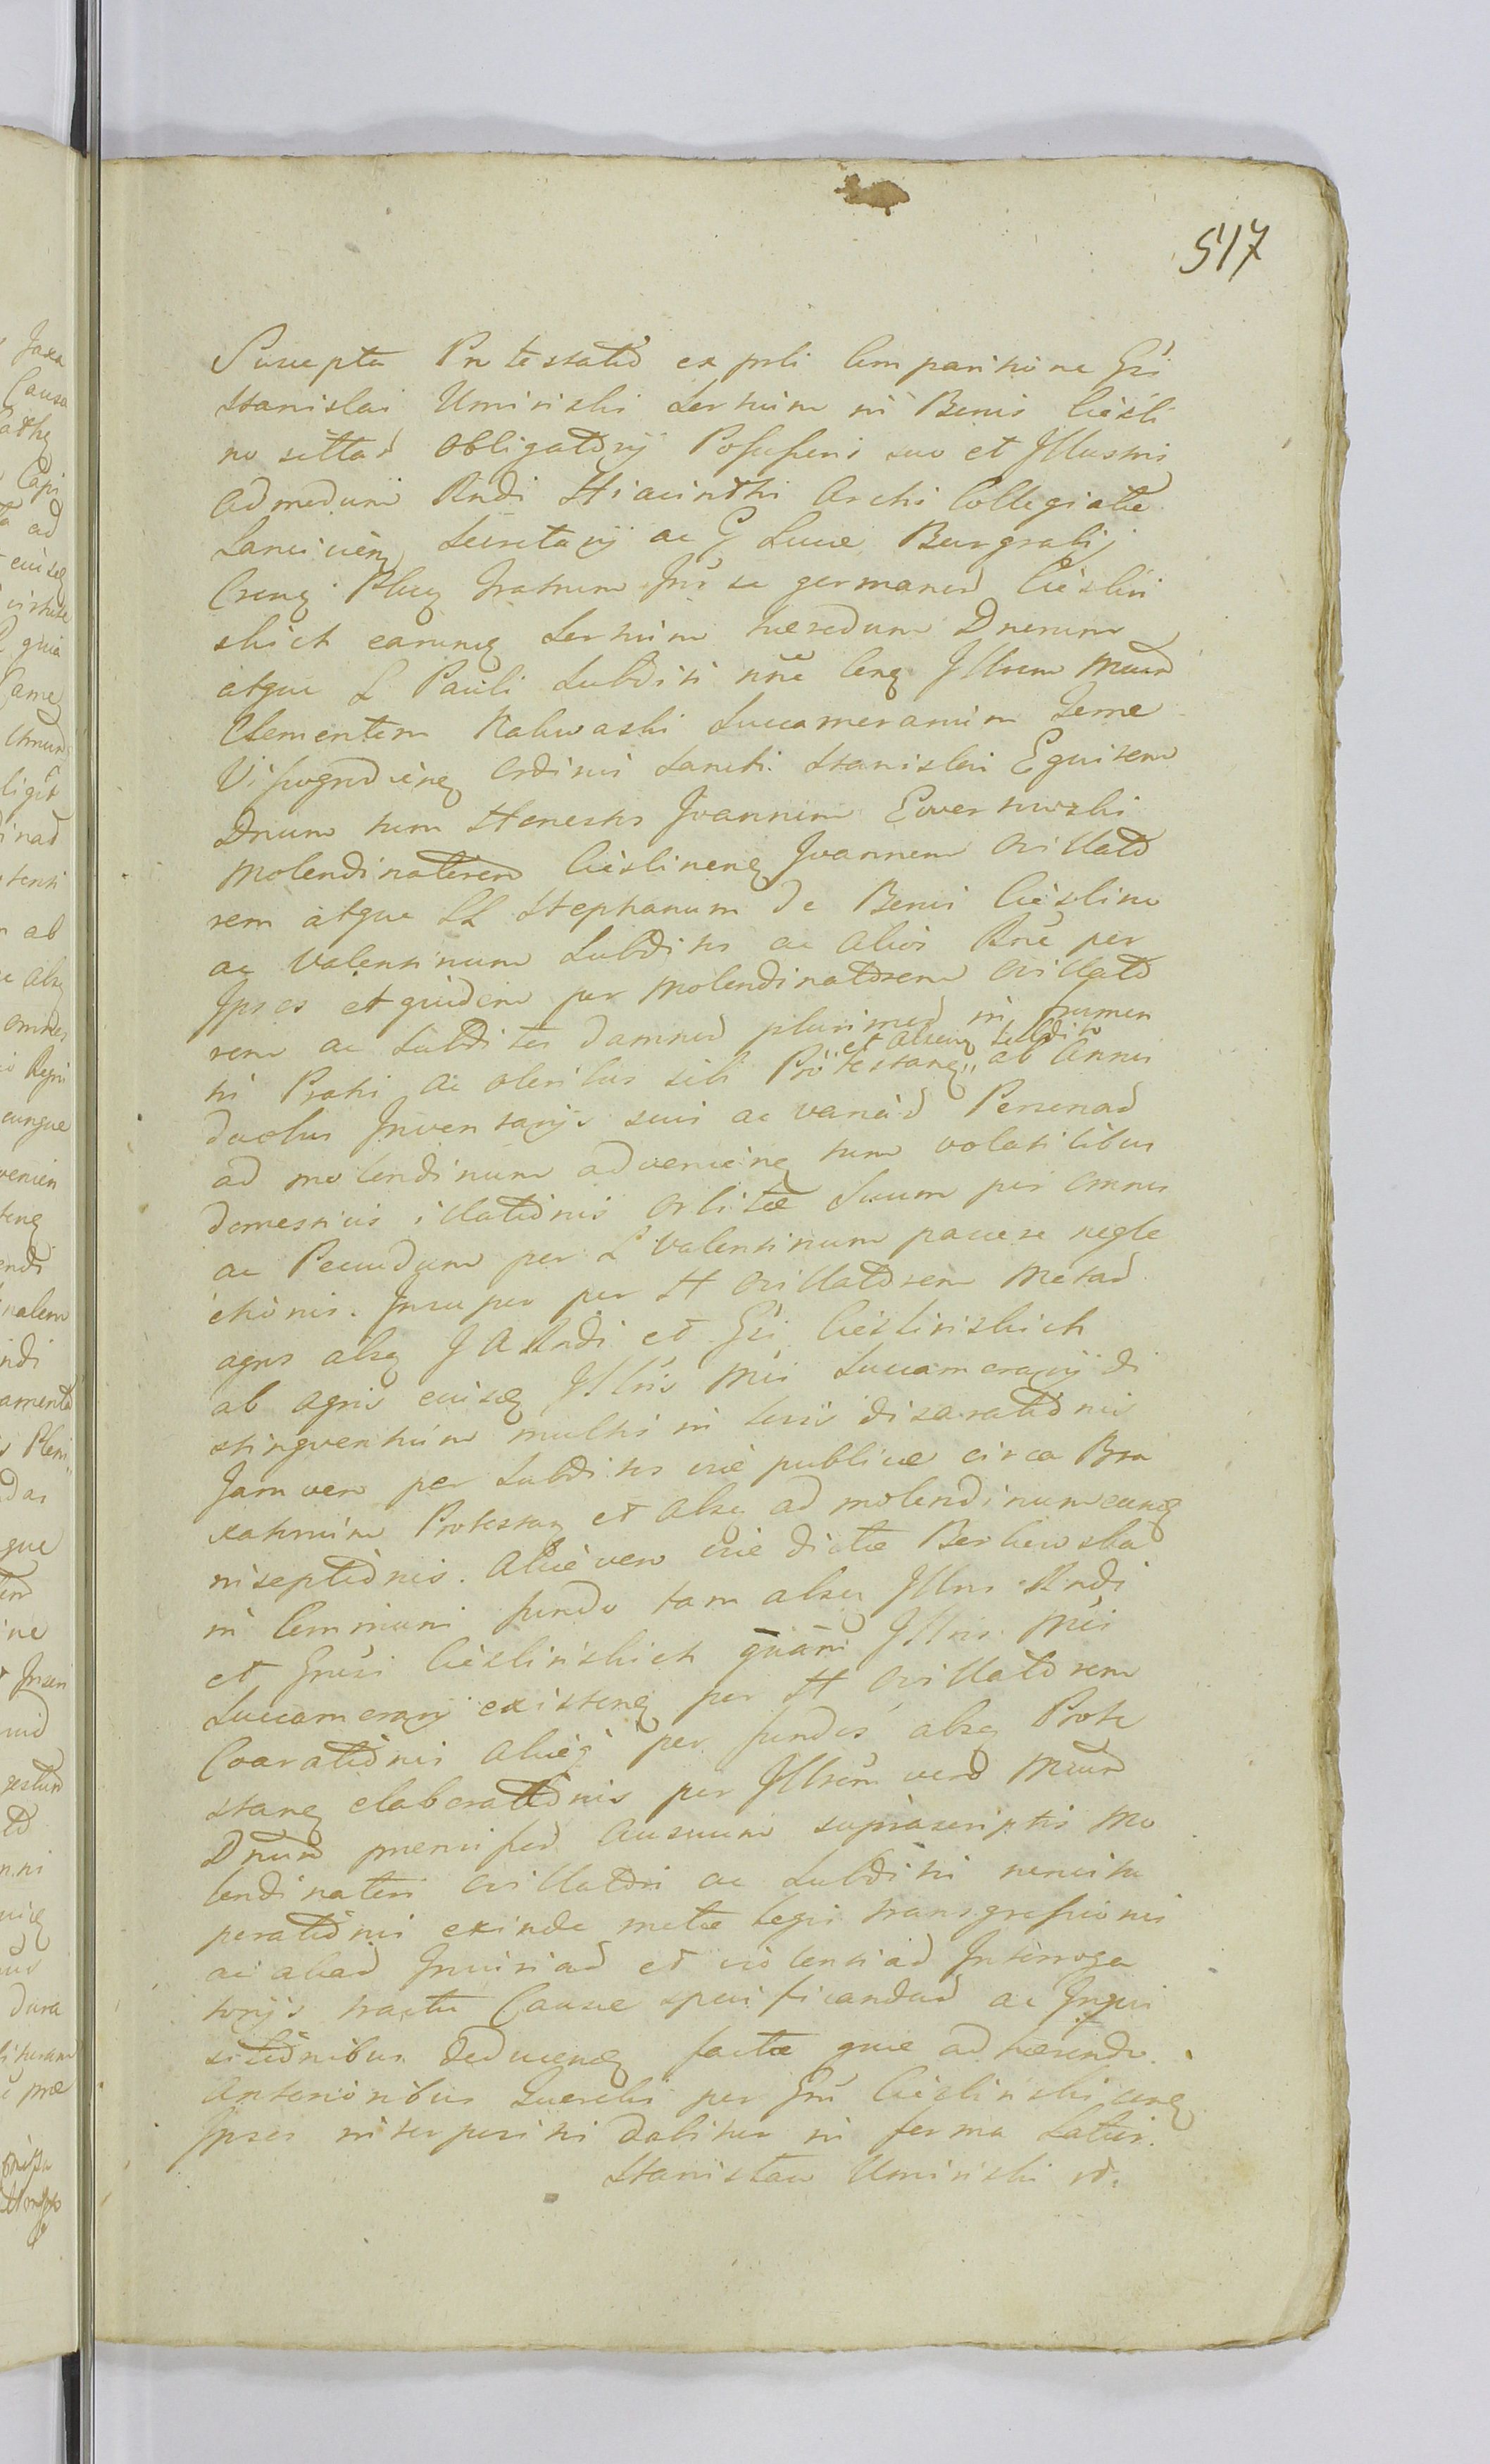 517
Suscepta Protestatio ex psli Comparitione Gsi
Stanislai Uminski Sortium in Bonis Cieśli
no sittas Obligatorij Possessoris suo et Illustris
admodum Rndi Hiacinthi Archi Collegiatæ
Lancicien Secretarij ac G Lucæ Burgrabij
Cren Plocen fratrum inter se germanos Cieśliń
skich earumq Sortium hæredum Dnorum
atque L Pauli Subditi nõe Con Illrem Mcum
Clementem Nakwaski Succamerarium Terræ
Vissogrodien Ordinis Sancti Stanislai Equitem
Dnum tum Honestos Joannem
Molendinatorem Cieślinen Joannem Ovillato
rem atque LL Stephanum de Bonis Cieślino
ac Valentinum Subditos ac alios Rõe per
Ipsos et quidem per Molendinatorem Ovillato
rem ac Subditos damnor plurimor in frumen
et alsey Subdito
ti Prati ac oleribus sibi Protestan ab Annis
duobus Inventarijs suis ac variar Personar
ad molendinum advenien tum volatilibus
domesticis illationis Orbitæ Suum per Omnes
ac Pecudum per L Valentinum pascere negle
ctionis. Insuper per H Ovillatorem Metas
agros alsey J A Rndi et Gsi Cieślińskich
ab agris eiusq Illris Mci Succamerarij di
stinguentium multis in locis disaratidnis
Jam vero per Subditos viæ publicæ circa Bra
xatorium Protestan et alsey ad molendinum eunq
inseptidnis. Aliæ vero viæ dictæ Borkowska
in Communi fundo tam alsey Illris Rndi
et Gnesi Cieślińskich quam Illris Mci
Succamerarij existen per H Ovillatorem
Coaratidnis aliæq per fundos alsey Prote
stan elaboratidnis per Illrem vero Mcum
Dnum præmissor ausuum suprascriptis Mo
lendinatori Ovillatori ac Subditis
peratidnis exinde motæ legis transgressionis
ac aliar Iniuriar et violentiar Interroga
torijs tractu Causæ specificandar ac Inqui
sitidnibus deducen factæ quæ adhærendo
Anterioribus Querelis per Gsm Cieśliński con
Ipsos interpositis dabitur in forma Latiori.
Stanisław Uminski